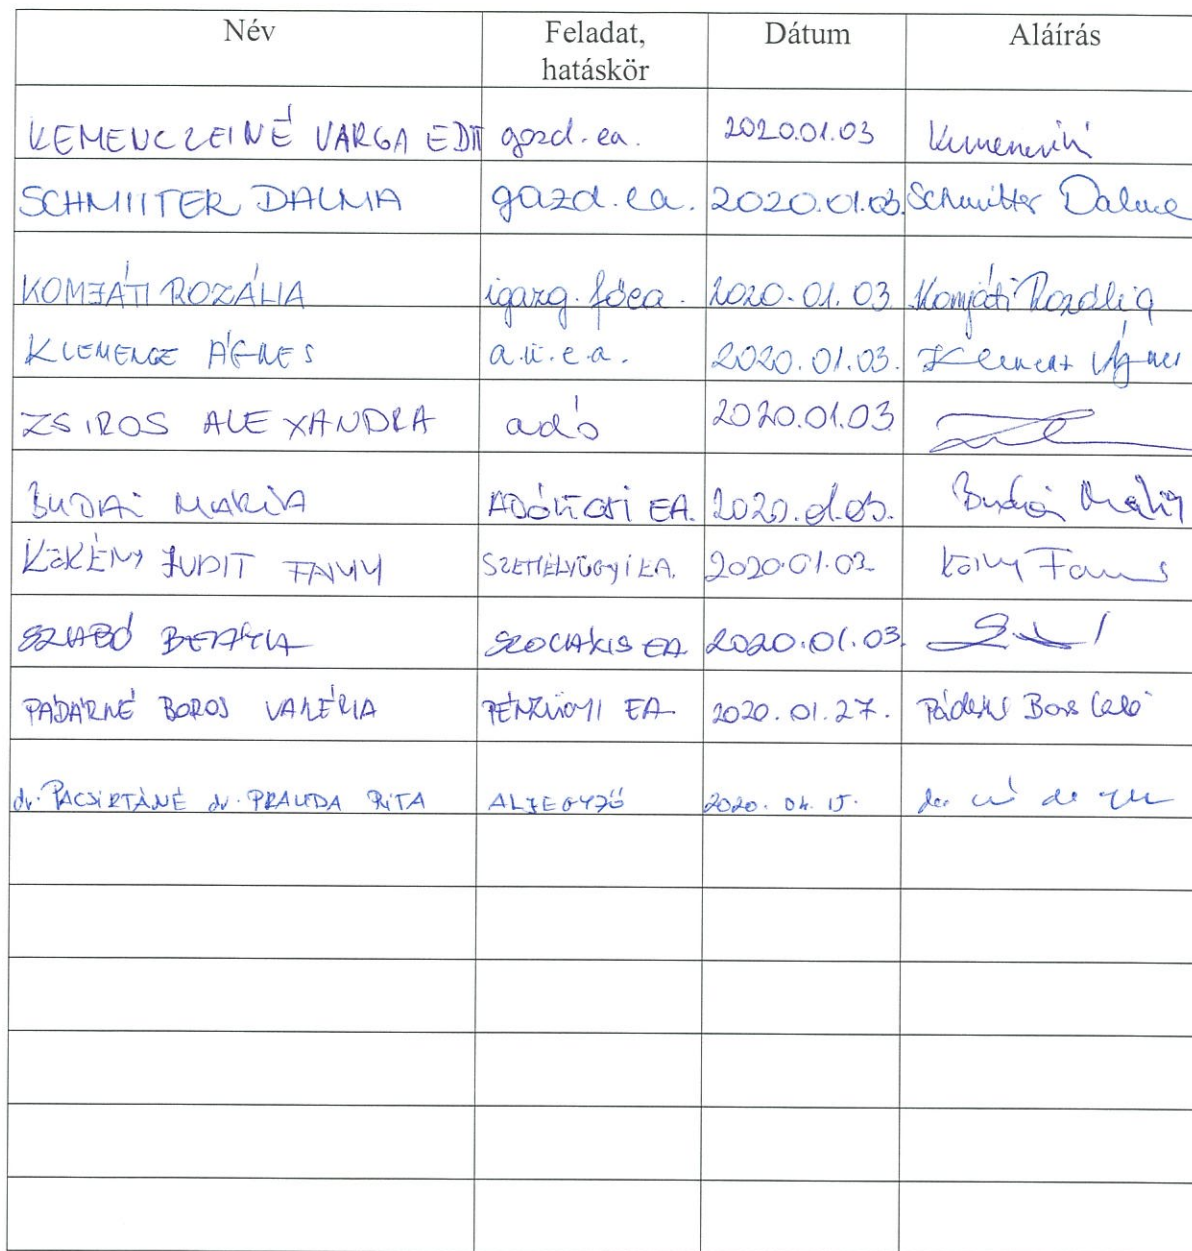 Név Feladat, hatáskör Dátum Aláírás
KEMENCZEINÉ VARGA EDIT gazd. ea. 2020.01.03
SCHMITTER DALMA gazd. ea. 2020.01.03. Schmitter Dalma
KOMJÁTI ROZÁLIA igazg. főea. 2020.01.03 Komjáti Rozália
KLEMENCZ ÁGNES a.ü.e.a. 2020.01.03. Ágnes
ZSIROS ALEXANDRA adó 2020.01.03
BUDAI MÁRIA ADÓÜGYI EA. 2020.01.03. Budai Mária
KÖKÉNY JUDIT FANNY SZEMÉLYÜGYI EA. 2020.01.03.
SZABÓ SZOCIÁLIS EA 2020.01.03.
PÁDÁRNÉ BOROS VALÉRIA PÉNZÜGYI EA 2020.01.27.
dr. PACSIRTÁNÉ dr. PRAUDA RITA ALJEGYZŐ 2020.04.15.